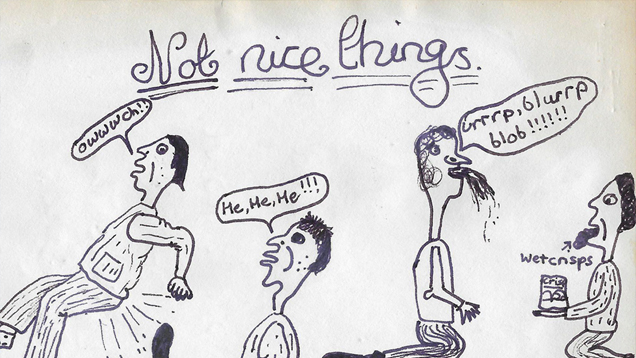 Not nice things.
owwwch!!
He, He, He!!!
urrrp, blurrp
blob!!!!!!
wetcrisps
Cris